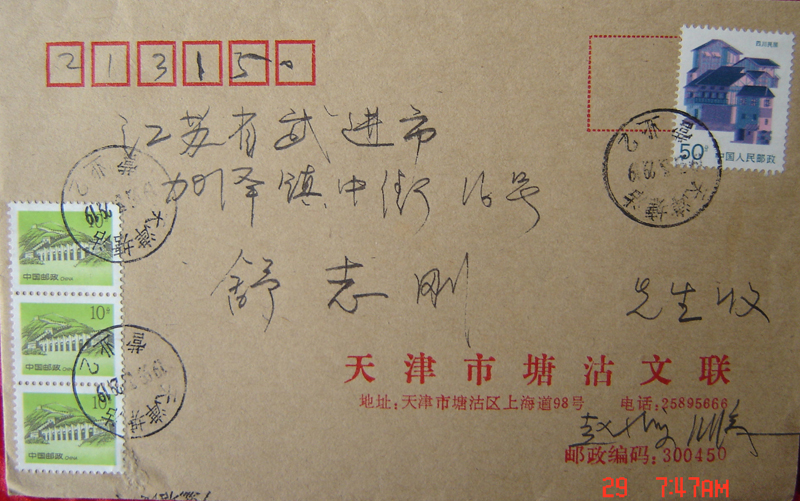 213150
四川民居
50分 中国人民邮政
江苏省武进市
加泽镇中街16号
舒志刚
先生收
10分
中国邮政 CHINA
10分
中国邮政 CHINA
10分
中国邮政 CHINA
天津塘沽
天津市塘沽文联
地址:天津市塘沽区上海道98号 电话:25895666
邮政编码:300450
29 7:47AM